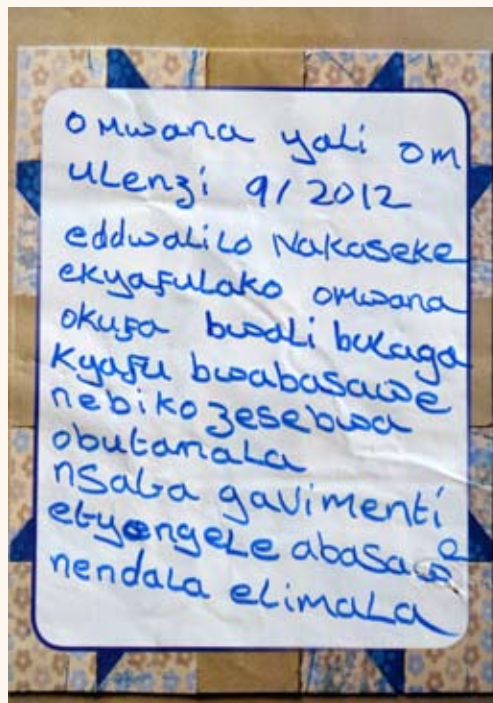 omwana yali om
ulenzi 9/2012
eddwalilo Nakaseke
ekyafulako omwana
okufa bwali bulaga
kyafu bwabasawe
nebikozesebwa
obutamala
nsaba gavimenti
etyongele abasawo
nendala elimala